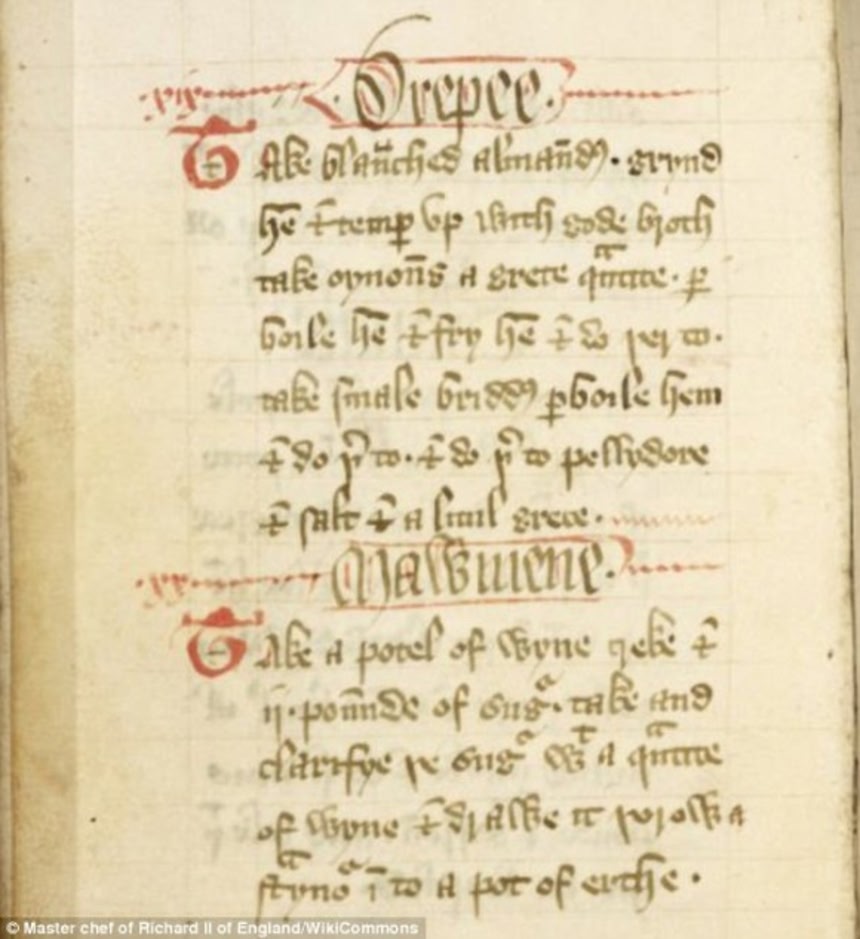 xix Drepee.
Take blañched almañdꝭ. grynd
hē ⁊ temꝑ vp with gode broth
take oynoñs a grete qᵃntite. ꝑ
boile hē ⁊ fry hē ⁊ do þer to.
take smale briddꝭ ꝑboile hem
⁊ do þ̉ to. ⁊ do þ̉ to pellydore
⁊ salt ⁊ a litul grece.
xx Mawmene.
Take a potel of wyne greke ⁊
ij. poũnde of sugᵃ. take and
clarifye þe sugᵃ wᵗ a qᵃntite
of wyne ⁊ drawe it þorow a
stⁱynoᵃ ī to a pot of erthe.
© Master chef of Richard II of England/WikiCommons